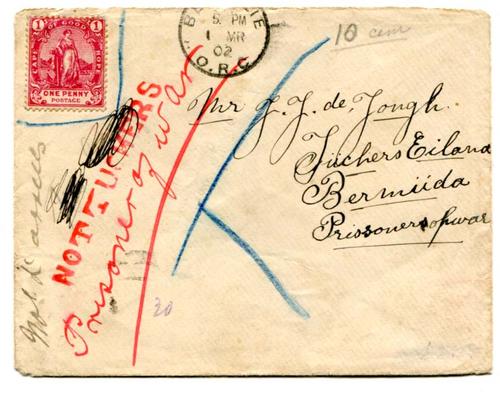 1 1
CAPE OF GOOD HOPE
ONE PENNY
POSTAGE
5 PM
1 MR
02
O.R.C.
10 cem
Mr J. J. de Jongh.
Tuchers Eiland
Bermuida
Prissonersofwar
NOT TUCKERS
Prisoner of War
20